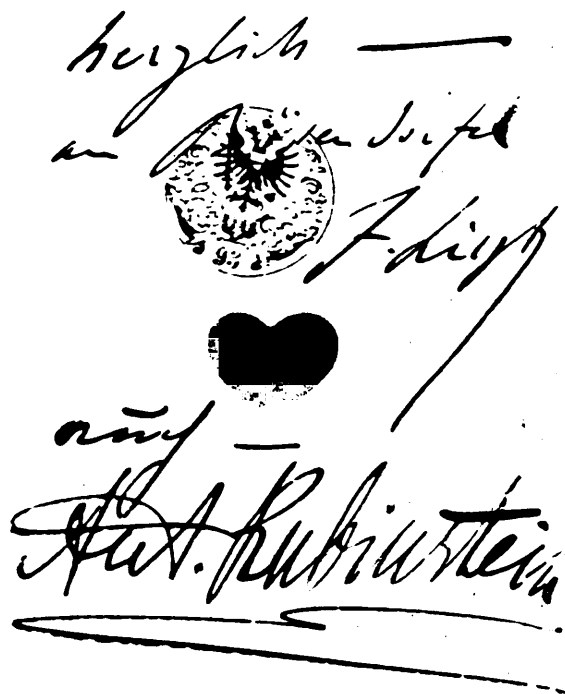 herzlich —
an
F. Liszt
auch —
Ant. Rubinstein